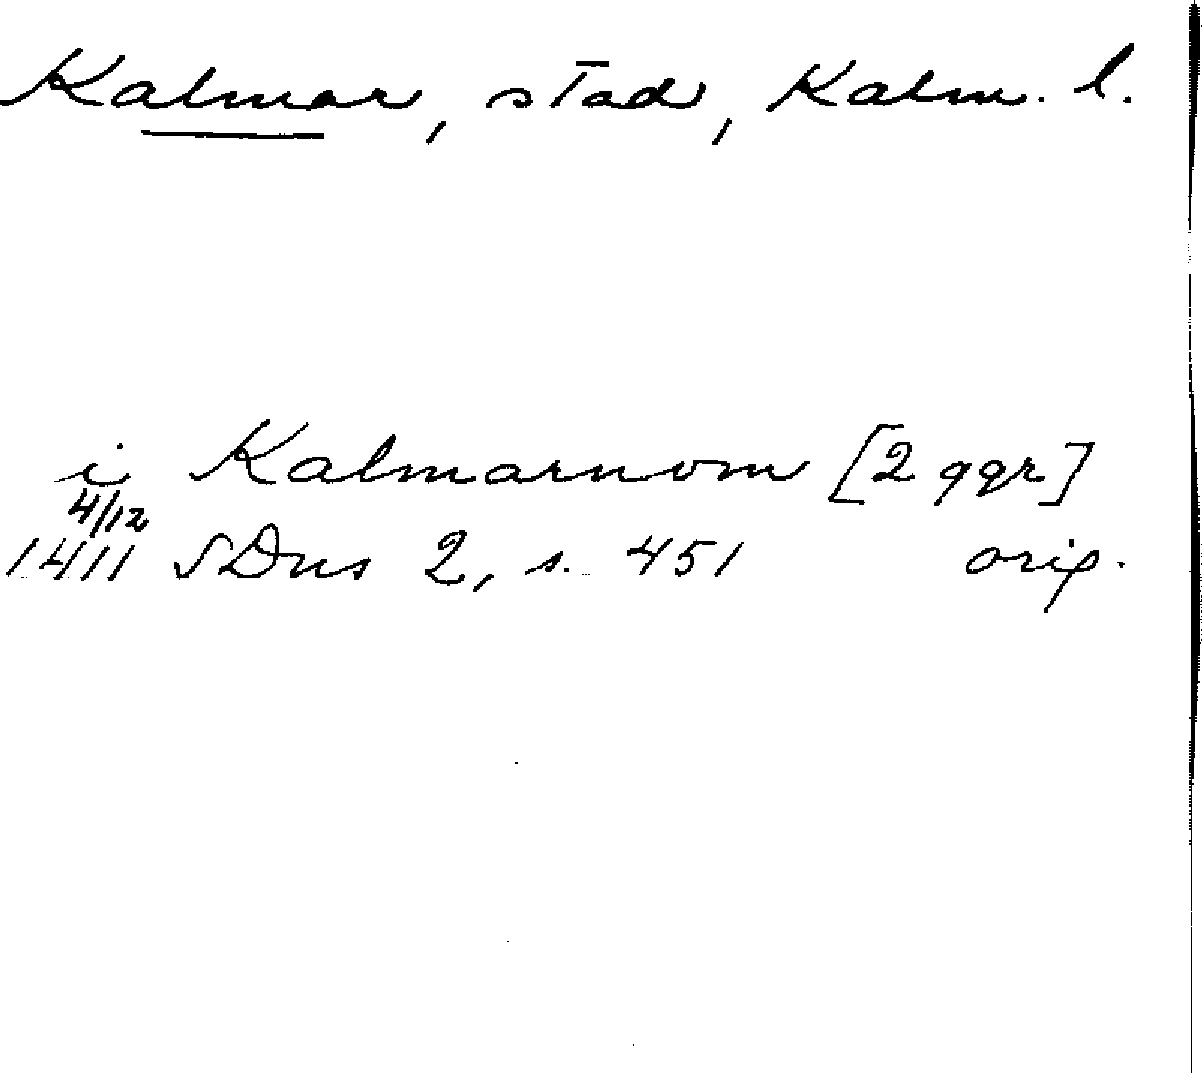 Kalmar, stad, Kalm. l.
i Kalmarnom [2 ggr]
4/12
1411 SDns 2, s. 451 orig.